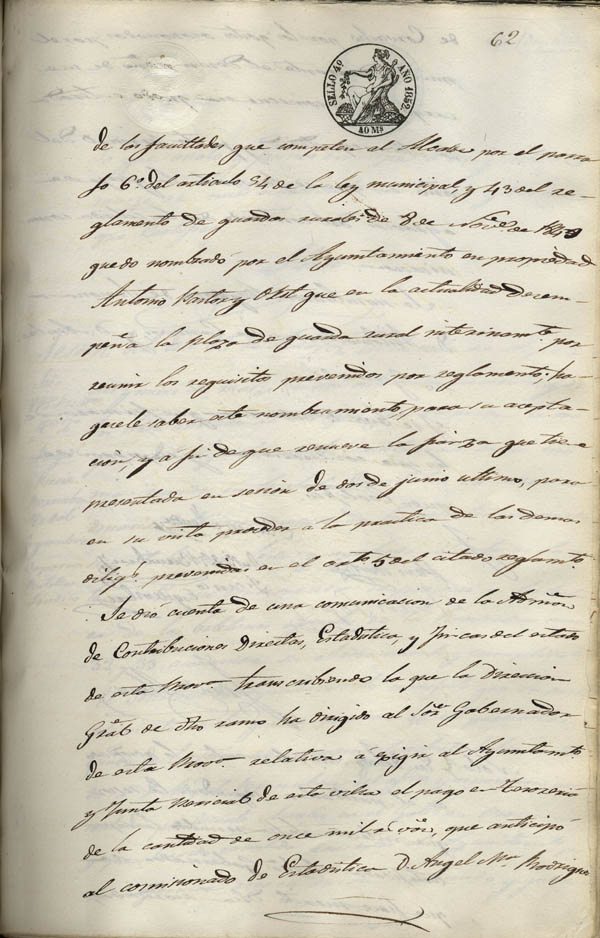 62
SELLO 4º AÑO 1852.
40 Ms
de las facultades que competen al Alcalde por el parra
fo 6º del articulo 74 de la ley municipal, y 43 del re-
glamento de guardas rurales de 8 de Novre de 1849
quedo nombrado por el Ayuntamiento en propiedad
Antonio Pastor y que en la actualidad decem-
peña la plaza de guarda rural interinamte por
reunir los requisitos prevenidos por reglamento; ha-
gacele saber este nombramiento para su acepta-
ción, y a fin de que renueve la fianza que tiene
presentada en sesion de dos de junio ultimo, para
en su vista proceder a la practica de las demas
diligs prevenidas en el arto 5 del citado reglamto
Se dió cuenta de una comunicacion de la Admon
de Contribuciones Directas, Estadistica, y Fincas del estado
de esta Prova transcribiendo la que la Direccion
Gral de dho ramo ha dirigido al Sor Gobernador
de esta Prova relativa á exigir al Ayuntamto
y Junta pericial de esta villa el pago en Tesoreria
de la cantidad de once mil rs von, que anticipó
al comisionado de Estadistica D. Angel Ma Rodriguez